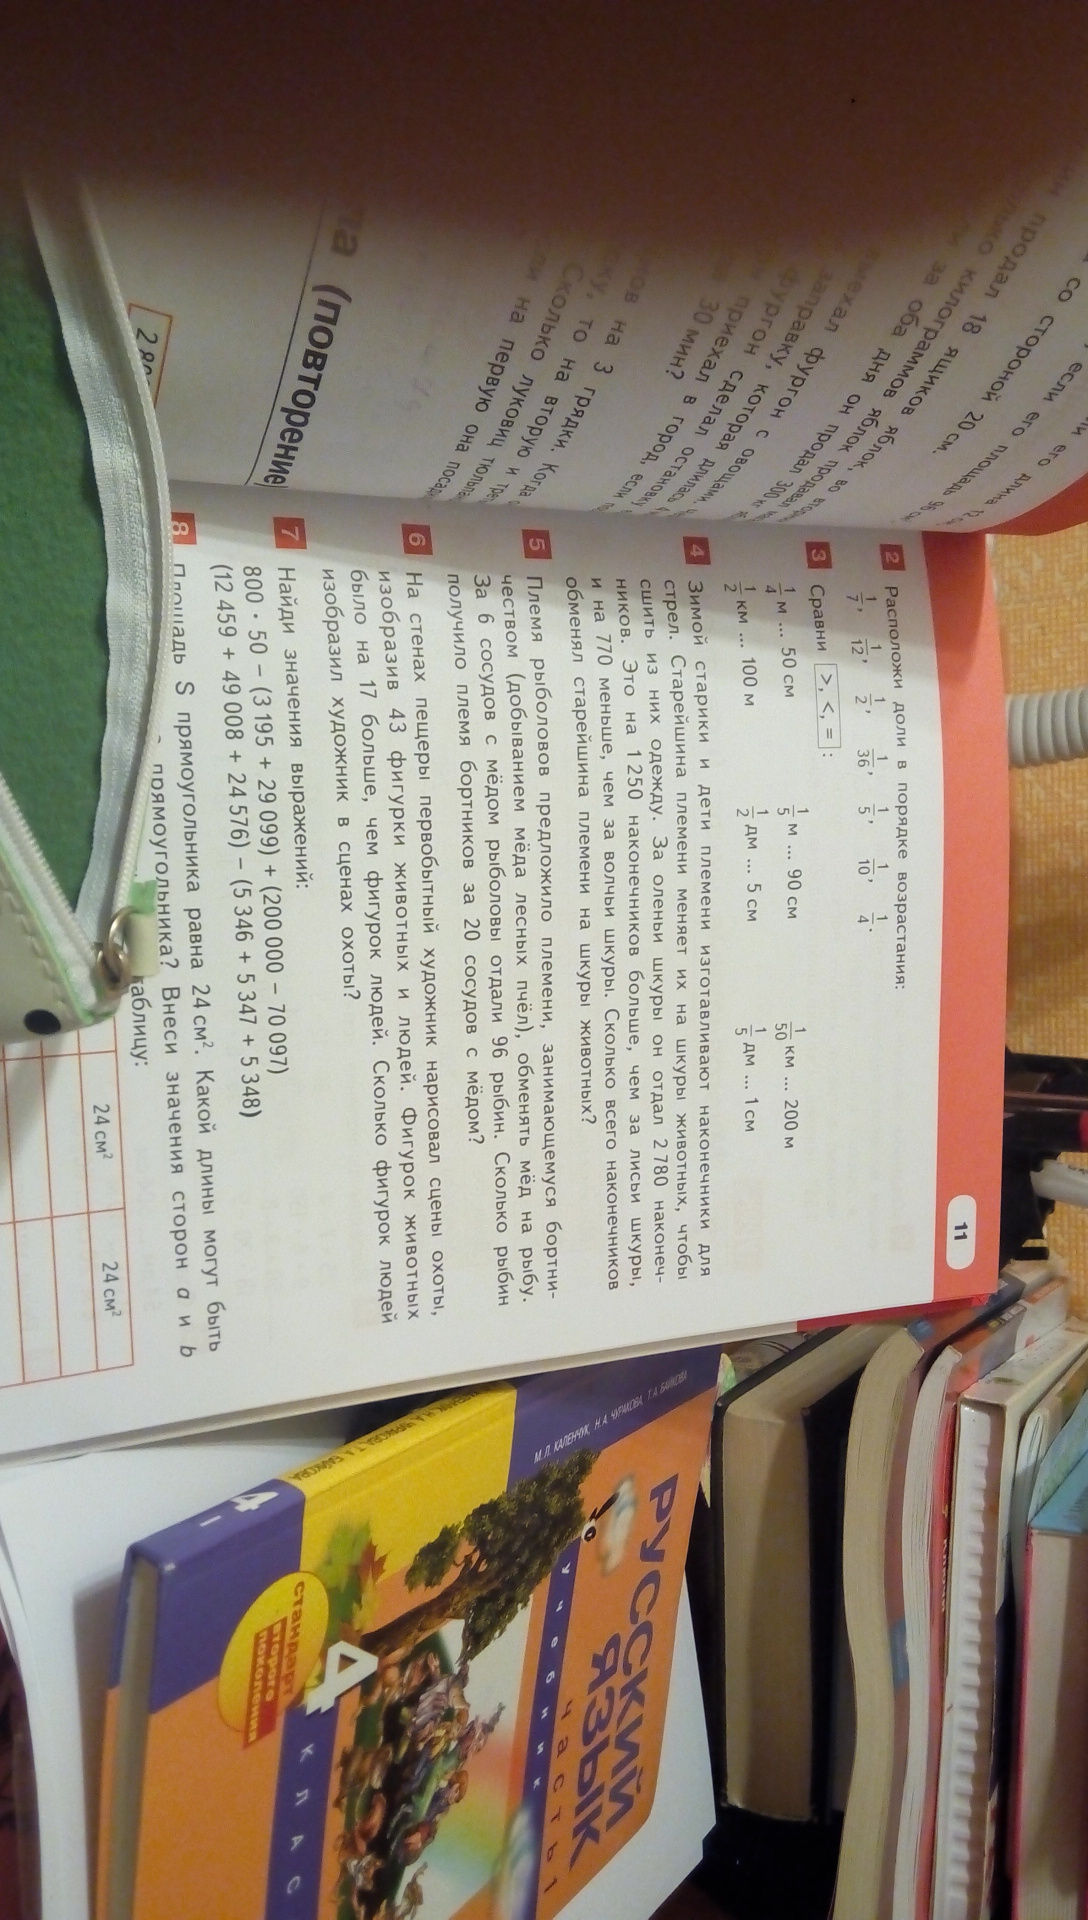 11
2 Расположи доли в порядке возрастания:
1/7, 1/12, 1/2, 1/36, 1/5, 1/10, 1/4.
3 Сравни >, <, = :
1/4 м ... 50 см 1/5 м ... 90 см 1/50 км ... 200 м
1/2 км ... 100 м 1/2 дм ... 5 см 1/5 дм ... 1 см
4 Зимой старики и дети племени изготавливают наконечники для
стрел. Старейшина племени меняет их на шкуры животных, чтобы
сшить из них одежду. За оленьи шкуры он отдал 2 780 наконеч-
ников. Это на 1 250 наконечников больше, чем за лисьи шкуры,
и на 770 меньше, чем за волчьи шкуры. Сколько всего наконечников
обменял старейшина племени на шкуры животных?
5 Племя рыболовов предложило племени, занимающемуся бортни-
чеством (добыванием мёда лесных пчёл), обменять мёд на рыбу.
За 6 сосудов с мёдом рыболовы отдали 96 рыбин. Сколько рыбин
получило племя бортников за 20 сосудов с мёдом?
6 На стенах пещеры первобытный художник нарисовал сцены охоты,
изобразив 43 фигурки животных и людей. Фигурок животных
было на 17 больше, чем фигурок людей. Сколько фигурок людей
изобразил художник в сценах охоты?
7 Найди значения выражений:
800 · 50 − (3 195 + 29 099) + (200 000 − 70 097)
(12 459 + 49 008 + 24 576) − (5 346 + 5 347 + 5 348)
8 Площадь S прямоугольника равна 24 см². Какой длины могут быть
прямоугольника? Внеси значения сторон a и b
таблицу:
24 см² 24 см²
со стороной 20 см.
если его площадь 96
его длина 12
продал 18 ящиков яблок, во
килограммов яблок
за оба дня он продал 300 кг
выехал фургон с овощами
заправку, которая длилась 4
фургон сделал остановку
приехал в город, если
30 мин?
на 3 грядки. Когда
то на вторую и
Сколько луковиц
на первую она
(повторение
М.Л. КАЛЕНЧУК, Н.А. ЧУРАКОВА, Т.А. БАЙКОВА
РУССКИЙ
ЯЗЫК
учебник
часть 1
4
КЛАС
стандарт
второго
поколения
Н.А. ЧУРАКОВА, Т.А. БАЙКОВА
4